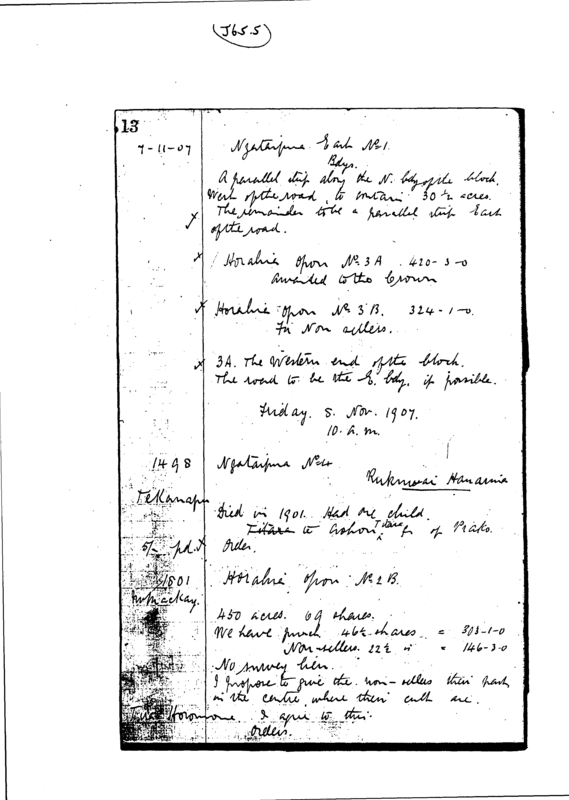 J65.5
13
7-11-07 Ngataipua East No 1.
Bdys.
A parallel strip along the N. bdy of the block.
West of the road, to contain 30½ acres.
The remainder to be a parallel strip East
of the road.
Horahia Opou No. 3A 420-3-0
Awarded to the Crown
Horahia Opou No. 3B. 324-1-0.
For Non sellers.
3A. The Western end of the block.
The road to be the E. bdy. if possible.
Friday. 8. Nov. 1907.
10. a.m.
1498 Ngataipua No 4
Hanamia
Died in 1901. Had one child.
Titara to f. of Piako.
5/- pd. Order.
1801 Horahia Opou No 2B.
Mr Mackay.
450 acres. 69 shares.
We have purch 46½ shares = 303-1-0
Non-sellers. 22½ " = 146-3-0
No survey lien.
I propose to give the non-sellers their part
in the centre, where their cult are.
Horomona. I agree to this.
Orders.